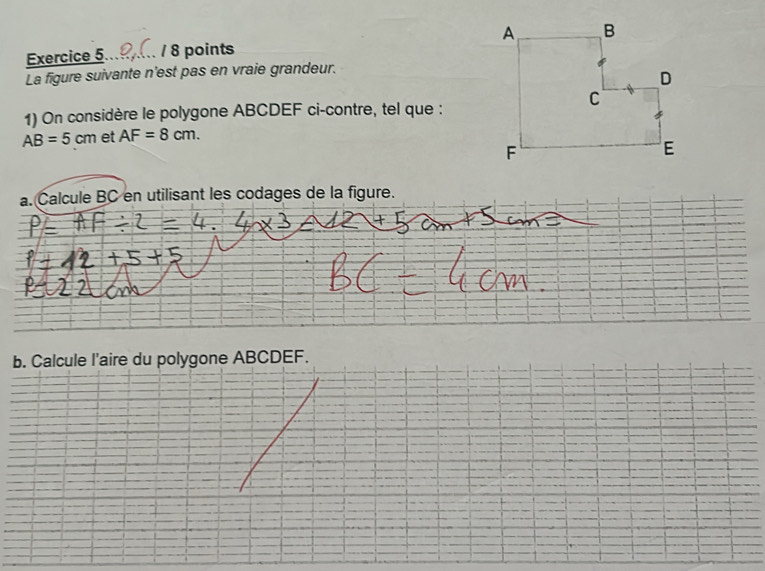 A B
Exercice 5............ / 8 points
La figure suivante n'est pas en vraie grandeur.
D
C
1) On considère le polygone ABCDEF ci-contre, tel que :
AB = 5 cm et AF = 8 cm.
F E
a. Calcule BC en utilisant les codages de la figure.
P= AF ÷ 2 = 4. 4x3 = 12 + 5 cm + 5 cm =
P = 12 + 5 + 5
P= 22 cm
BC = 4 cm.
b. Calcule l'aire du polygone ABCDEF.